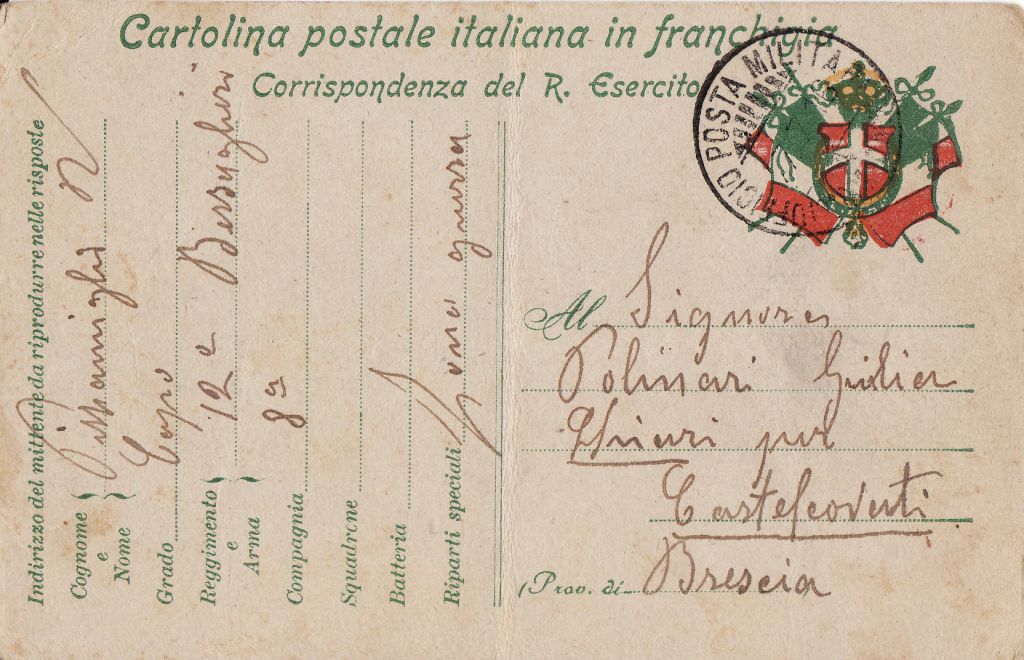 Cartolina postale italiana in franchigia
Corrispondenza del R. Esercito
UFFICIO POSTA MILITARE
Indirizzo del mittente da riprodurre nelle risposte
Cognome e Nome
Grado Capo
Reggimento e Arma 12a Bersaglieri
Compagnia 8a
Squadrone
Batteria
Riparti speciali Zona guerra
Al Signora
Polinari Giulia
Chiari per
Castelcovati
(Prov. di Brescia